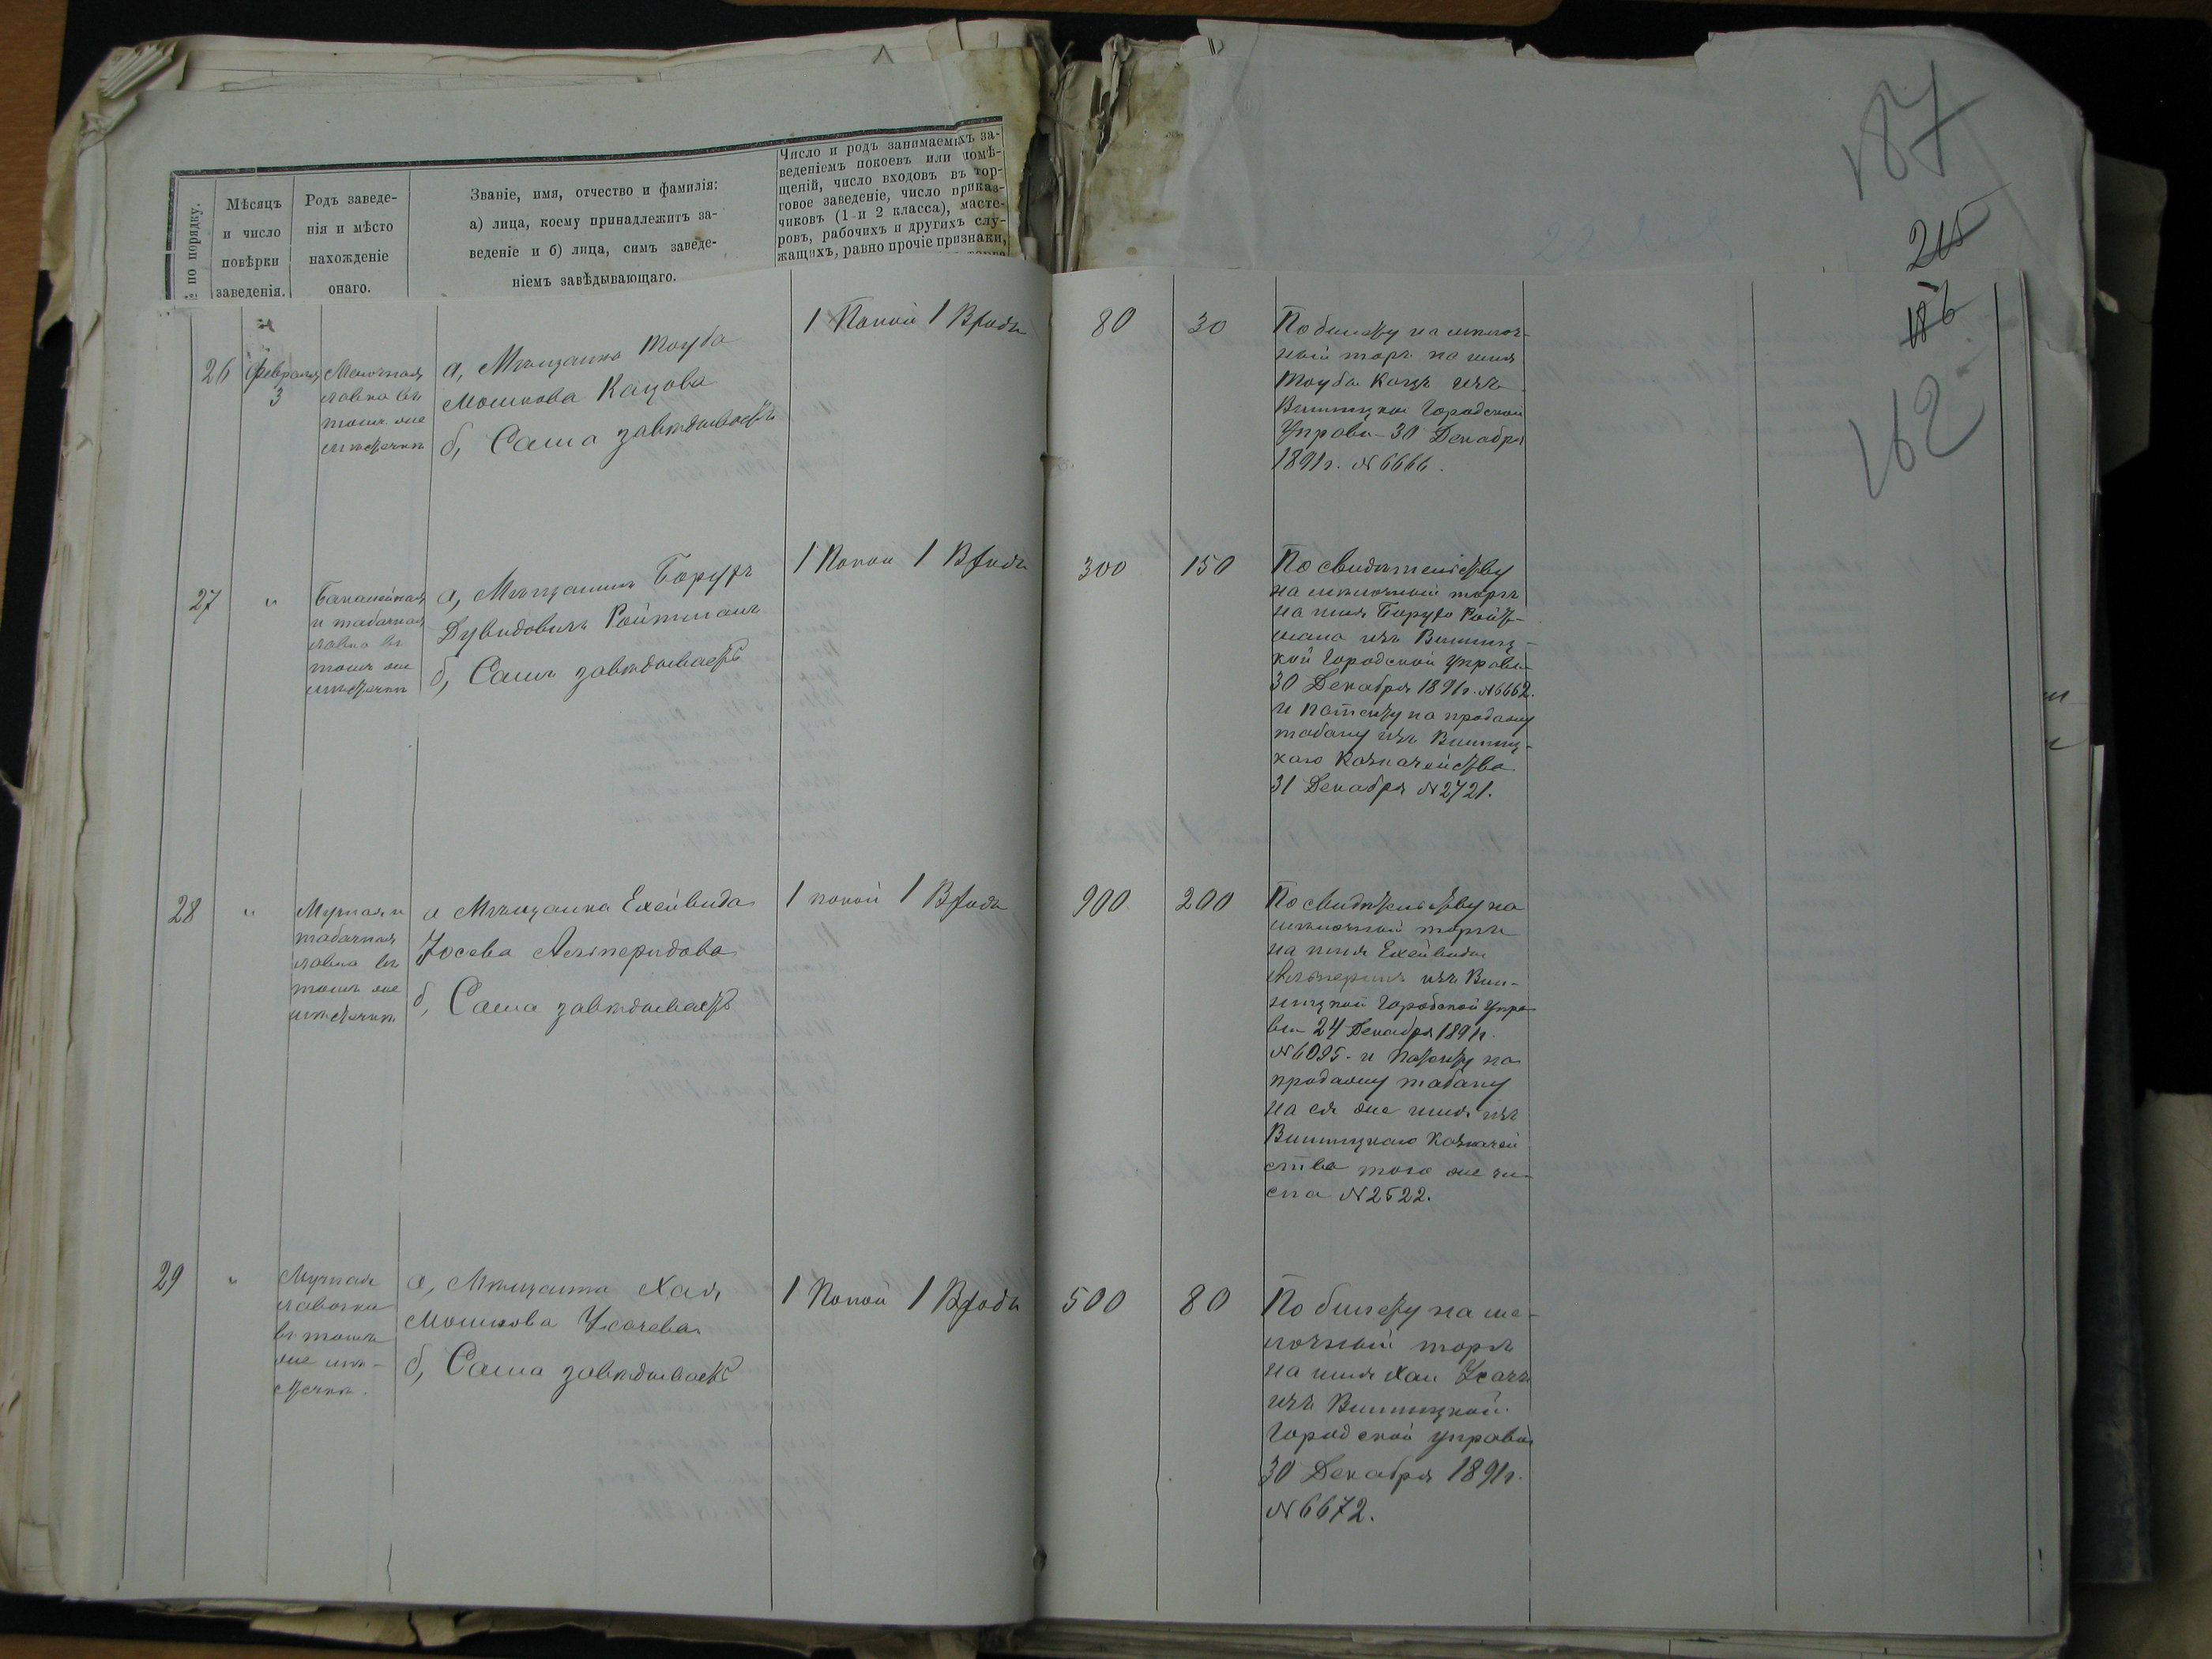 № по порядку.
Мѣсяцъ
и число
повѣрки
заведенія.
Родъ заведе-
нія и мѣсто
нахожденіе
онаго.
Званіе, имя, отчество и фамилія:
а) лица, коему принадлежитъ за-
веденіе и б) лица, симъ заведе-
ніемъ завѣдывающаго.
Число и родъ занимаемыхъ за-
веденіемъ покоевъ или помѣ-
щеній, число входовъ въ тор-
говое заведеніе, число приказ-
чиковъ (1 и 2 класса), масте-
ровъ, рабочихъ и другихъ слу-
жащихъ, равно прочіе признаки,
187
215
186
162
26
Февраля
3
Мелочная
лавка въ
томъ же
мѣстечкѣ
а, Мѣщанка Тоуба
Мошкова Кацова
б, Сама завѣдываетъ
1 Покой 1 Входъ
80
30
По билету на мелоч-
ный торгъ на имя
Тоубы Кацъ изъ
Винницкой Городской
Управы 30 Декабря
1891 г. № 6666.
27
"
Бакалейная
и табачная
лавка въ
томъ же
мѣстечкѣ
а, Мѣщанинъ Борухъ
Дувидовичъ Ройтманъ
б, Самъ завѣдываетъ
1 Покой 1 Входъ
300
150
По свидѣтельству
на мелочный торгъ
на имя Боруха Ройт-
мана изъ Винниц-
кой Городской Управы
30 Декабря 1891 г. № 6662.
и патенту на продажу
табаку изъ Винниц-
каго Казначейства
31 Декабря № 2721.
28
"
Мучная и
табачная
лавка въ
томъ же
мѣстечкѣ
а Мѣщанка Ехейвида
Іосева Альперидова
б, Сама завѣдываетъ
1 покой 1 Входъ
900
200
По свидѣтельству на
мелочный торгъ
на имя Ехейвиды
изъ Вин-
ницкой Городской Упра
вы 24 Декабря 1891 г.
№ 6095. и Патенту на
продажу табаку
на ея же имя изъ
Винницкаго Казначей
ства того же чи-
сла № 2522.
29
"
Мучная
лавочка
въ томъ
же мѣ-
стечкѣ.
а, Мѣщанка Хая
Мошкова Усачева
б, Сама завѣдываетъ
1 Покой 1 Входъ
500
80
По билету на ме-
лочный торгъ
на имя Хаи Усачъ
изъ Винницкой
Городской управы
30 Декабря 1891 г.
№ 6672.